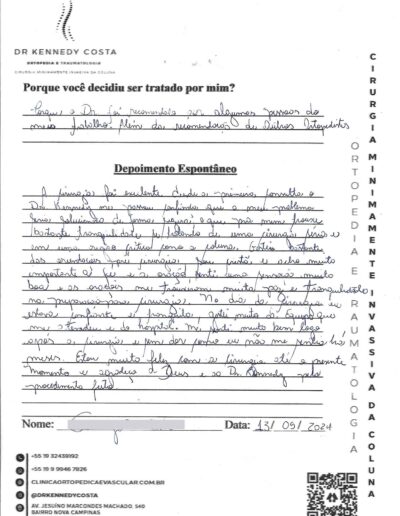 DR KENNEDY COSTA
ORTOPEDIA E TRAUMATOLOGIA
CIRURGIA MINIMAMENTE INVASIVA DA COLUNA
Porque você decidiu ser tratado por mim?
Porque o Dr foi recomendado por algumas pessoas do
meu trabalho. Além das recomendações de outros Ortopedistas
Depoimento Espontâneo
A cirurgia foi excelente, desde a primeira consulta o
Dr Kennedy me passou confiança que o meu problema
seria solucionado de forma segura, o que pra mim trouxe
bastante tranquilidade
em uma região crítica como a coluna. Gostei bastante
das orientações pré cirurgia
importante a fé e a oração senti uma sensação muito
boa e as orações me trouxeram muita paz e tranquilidade
na preparação para cirurgia. No dia da cirurgia eu
estava confiante e tranquilo, gostei muito da Equipe que
me atendeu e do hospital. Me senti muito bem logo
após a cirurgia e sem dor como eu não me sentia há
meses. Estou muito feliz com a cirurgia até o presente
momento e agradeço a Deus e ao Dr. Kennedy pelo
procedimento feito.
Nome:
Data: 13/09/2024
+55 19 32439192
+55 19 9 9946 7826
CLINICAORTOPEDICAEVASCULAR.COM.BR
@DRKENNEDYCOSTA
AV. JESUÍNO MARCONDES MACHADO, 540
BAIRRO NOVA CAMPINAS
ORTOPEDIA E TRAUMATOLOGIA
CIRURGIA MINIMAMENTE INVASSIVA DA COLUNA